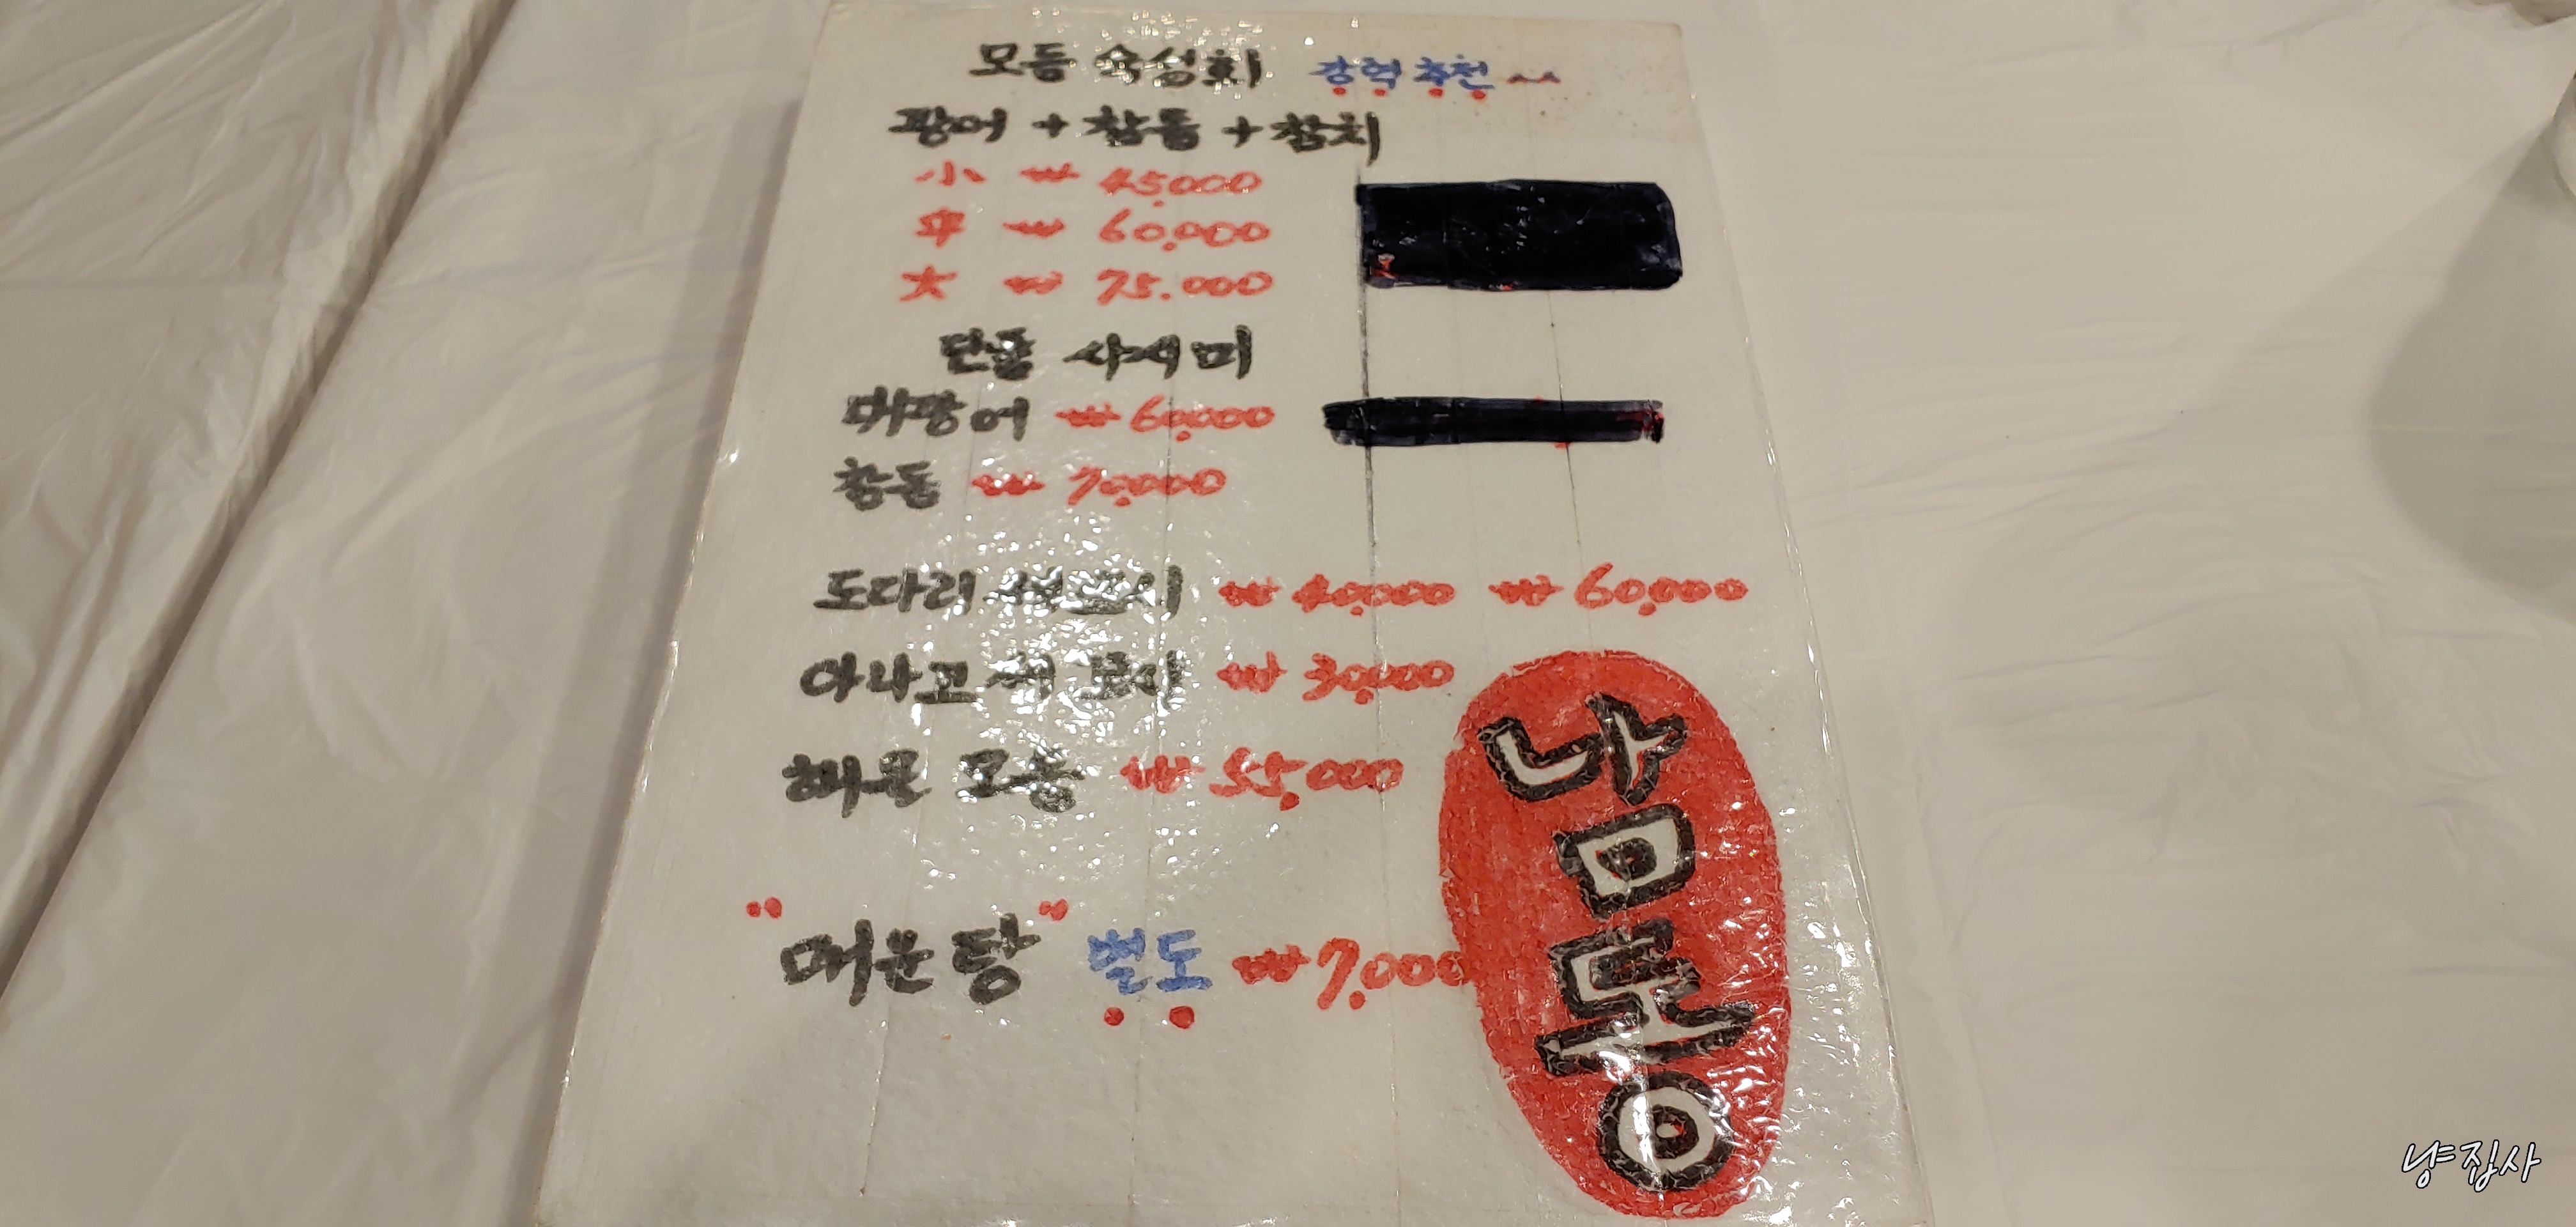 모듬 숙성회 강력추천 ^^
광어 + 참돔 + 참치
小 ₩ 45,000
中 ₩ 60,000
大 ₩ 75,000
단품 사시미
대광어 ₩ 60,000
참돔 ₩ 70,000
도다리 세꼬시 ₩ 40,000 ₩ 60,000
아나고 ₩ 30,000
해물 모둠 ₩ 55,000
"매운탕" 별도 ₩ 7,000
남도몽
냥집사